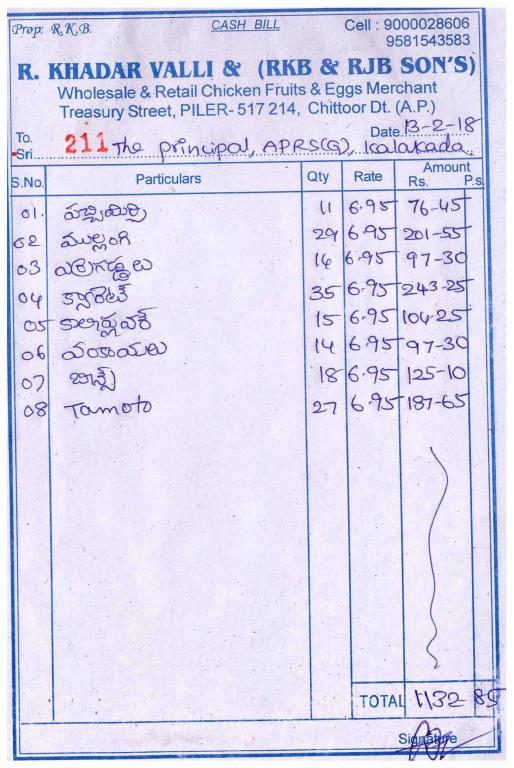 Prop: R.K.B. CASH BILL Cell : 9000028606
9581543583
R. KHADAR VALLI & (RKB & RJB SON'S)
Wholesale & Retail Chicken Fruits & Eggs Merchant
Treasury Street, PILER- 517 214, Chittoor Dt. (A.P.)
To. Date. 13-2-18
Sri 211 The principal, APRS(G), Kalakada
S.No. Particulars Qty Rate Amount
Rs. P.s.
01. పచ్చిమిర్చి 11 6.95 76-45
02 ముల్లంగి 29 6.95 201-55
03 ఎర్రగడ్డలు 14 6.95 97-30
04 క్యారెట్ 35 6.95 243-25
05 కాలిఫ్లవర్ 15 6.95 104-25
06 వంకాయలు 14 6.95 97-30
07 బీన్స్ 18 6.95 125-10
08 Tamoto 27 6.95 187-65
TOTAL 1132 85
Signature